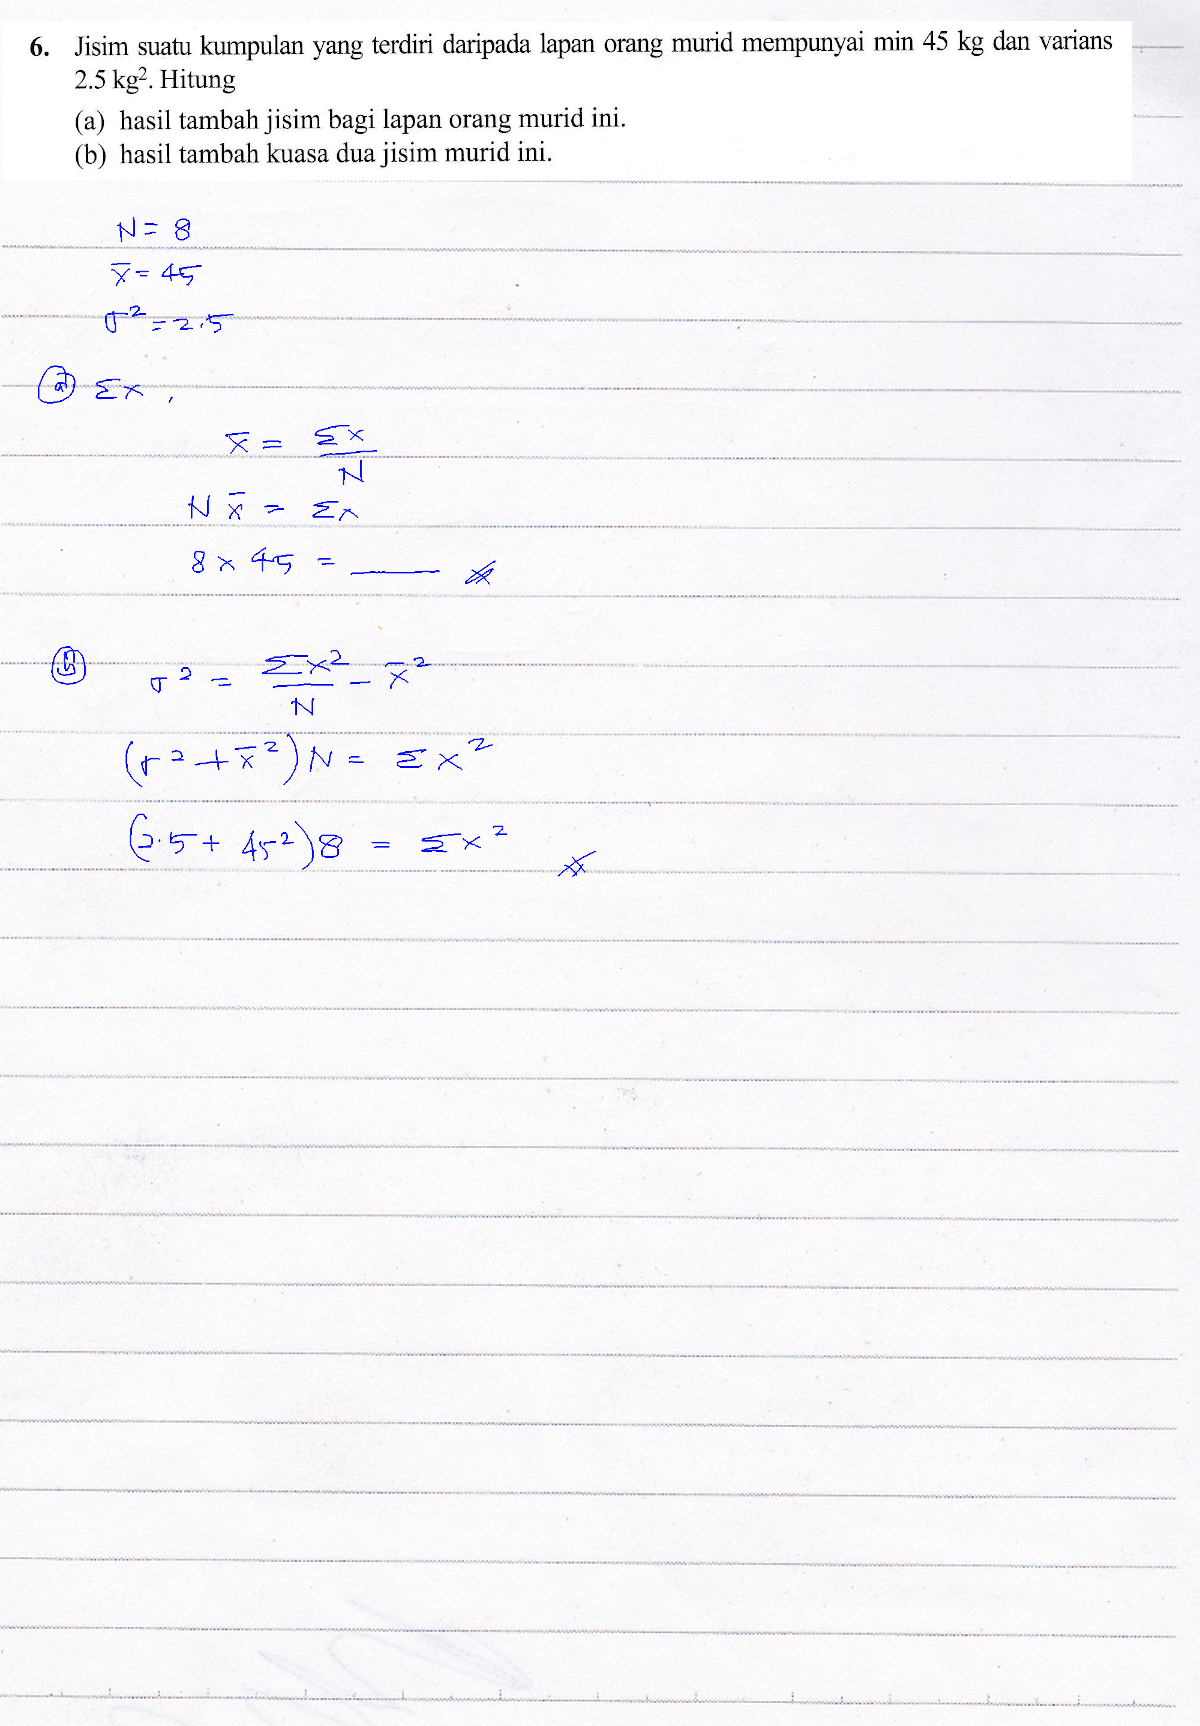 6. Jisim suatu kumpulan yang terdiri daripada lapan orang murid mempunyai min 45 kg dan varians
2.5 kg². Hitung
(a) hasil tambah jisim bagi lapan orang murid ini.
(b) hasil tambah kuasa dua jisim murid ini.
N = 8
x̄ = 45
σ² = 2.5
(a) Σx,
x̄ = Σx / N
N x̄ = Σx
8 × 45 = ____
(b) σ² = Σx² / N − x̄²
(σ² + x̄²) N = Σx²
(2.5 + 45²) 8 = Σx²